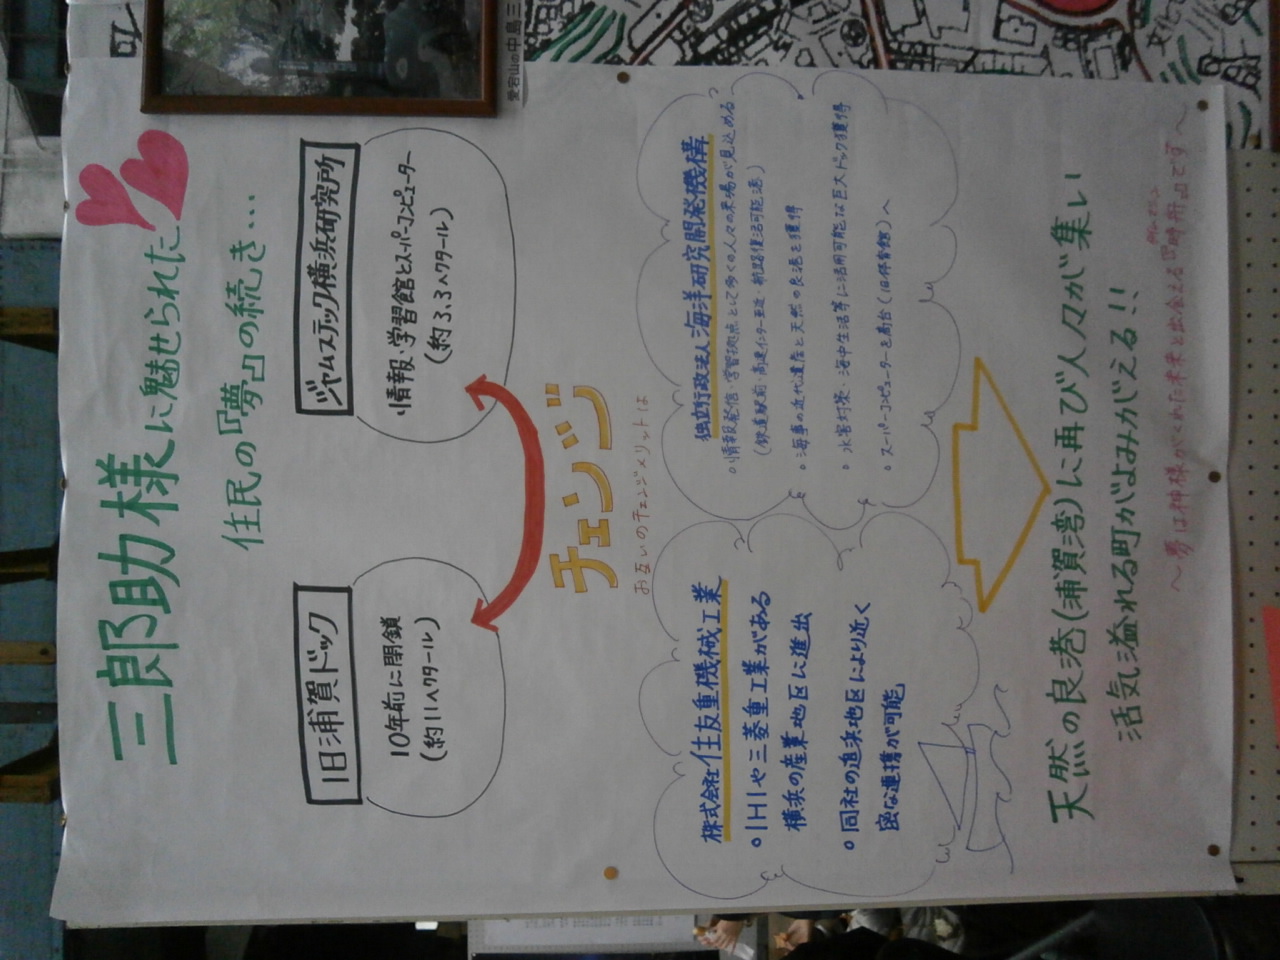 三郎助様に魅せられた
住民の『夢』の続き…
旧浦賀ドック
10年前に閉鎖
(約11ヘクタール)
ジャムステック横浜研究所
情報・学習館とスーパーコンピューター
(約3.3ヘクタール)
チェンジ
お互いのチェンジメリットは
株式会社住友重機械工業
○IHIや三菱重工業がある
横浜の産業地区に進出
○同社の追浜地区により近く
密な連携が可能
独立行政法人海洋研究開発機構
○情報発信・学習拠点として多くの人々の来場が見込める
(鉄道駅前・高速インター至近・航路復活可能港)
○海事の近代遺産と天然の良港を獲得
○水害対策・海中生活等に活用可能な巨大ドック獲得
○スーパーコンピューターを高台(旧体育館)へ
天然の良港(浦賀湾)に再び人々が集い
活気溢れる町がよみがえる!!
〜夢は神様がくれた未来と出会える『時所』です〜
愛宕山の中島三